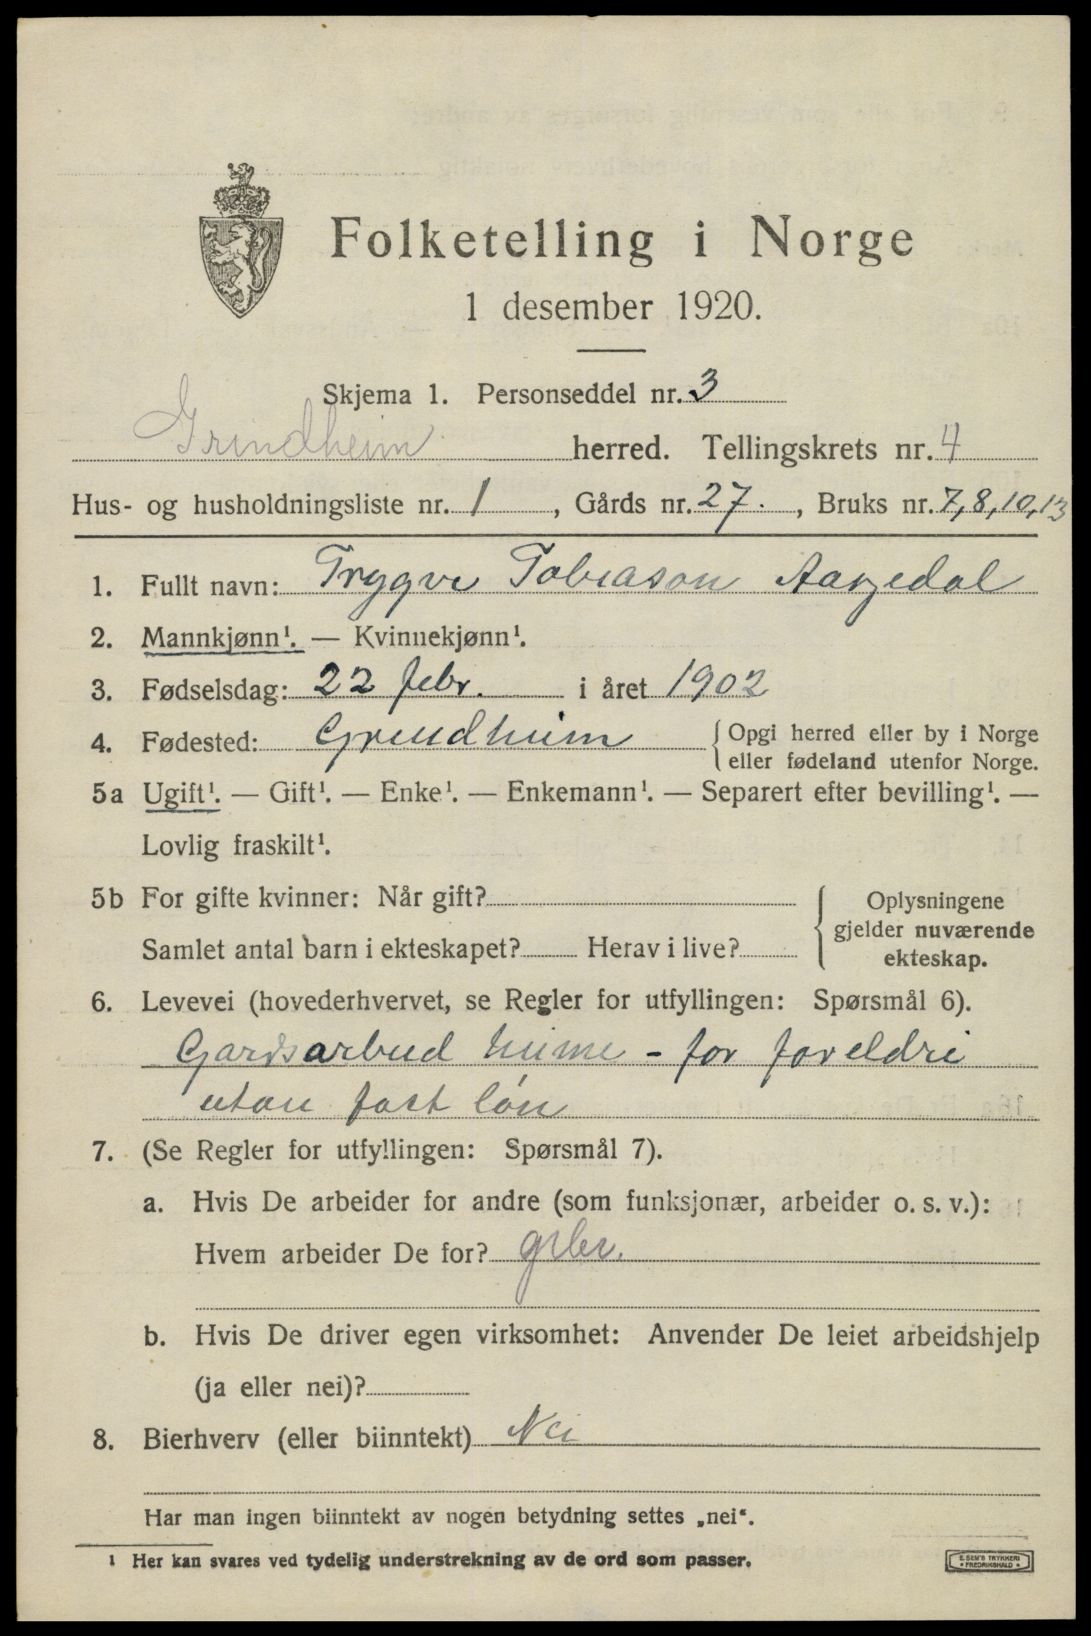 Folketelling i Norge
1 desember 1920.
Skjema 1. Personseddel nr. 3
Grindheim herred. Tellingskrets nr. 4
Hus- og husholdningsliste nr. 1, Gårds nr. 27., Bruks nr. 7,8,10,13
1. Fullt navn: Trygve Tobiason Aasedal
2. Mannkjønn¹. — Kvinnekjønn¹.
3. Fødselsdag: 22 febr. i året 1902
4. Fødested: Grindheim { Opgi herred eller by i Norge
eller fødeland utenfor Norge.
5a Ugift¹. — Gift¹. — Enke¹. — Enkemann¹. — Separert efter bevilling¹. —
Lovlig fraskilt¹.
5b For gifte kvinner: Når gift?
Samlet antal barn i ekteskapet? Herav i live?
{ Oplysningene
gjelder nuværende
ekteskap.
6. Levevei (hovederhvervet, se Regler for utfyllingen: Spørsmål 6).
Gardsarbeid heime - for foreldre
utan fast løn
7. (Se Regler for utfyllingen: Spørsmål 7).
a. Hvis De arbeider for andre (som funksjonær, arbeider o. s. v.):
Hvem arbeider De for? grbr.
b. Hvis De driver egen virksomhet: Anvender De leiet arbeidshjelp
(ja eller nei)?
8. Bierhverv (eller biinntekt) Nei
Har man ingen biinntekt av nogen betydning settes „nei“.
¹ Her kan svares ved tydelig understrekning av de ord som passer.
E. SEM'S TRYKKERI
• FREDRIKSHALD •